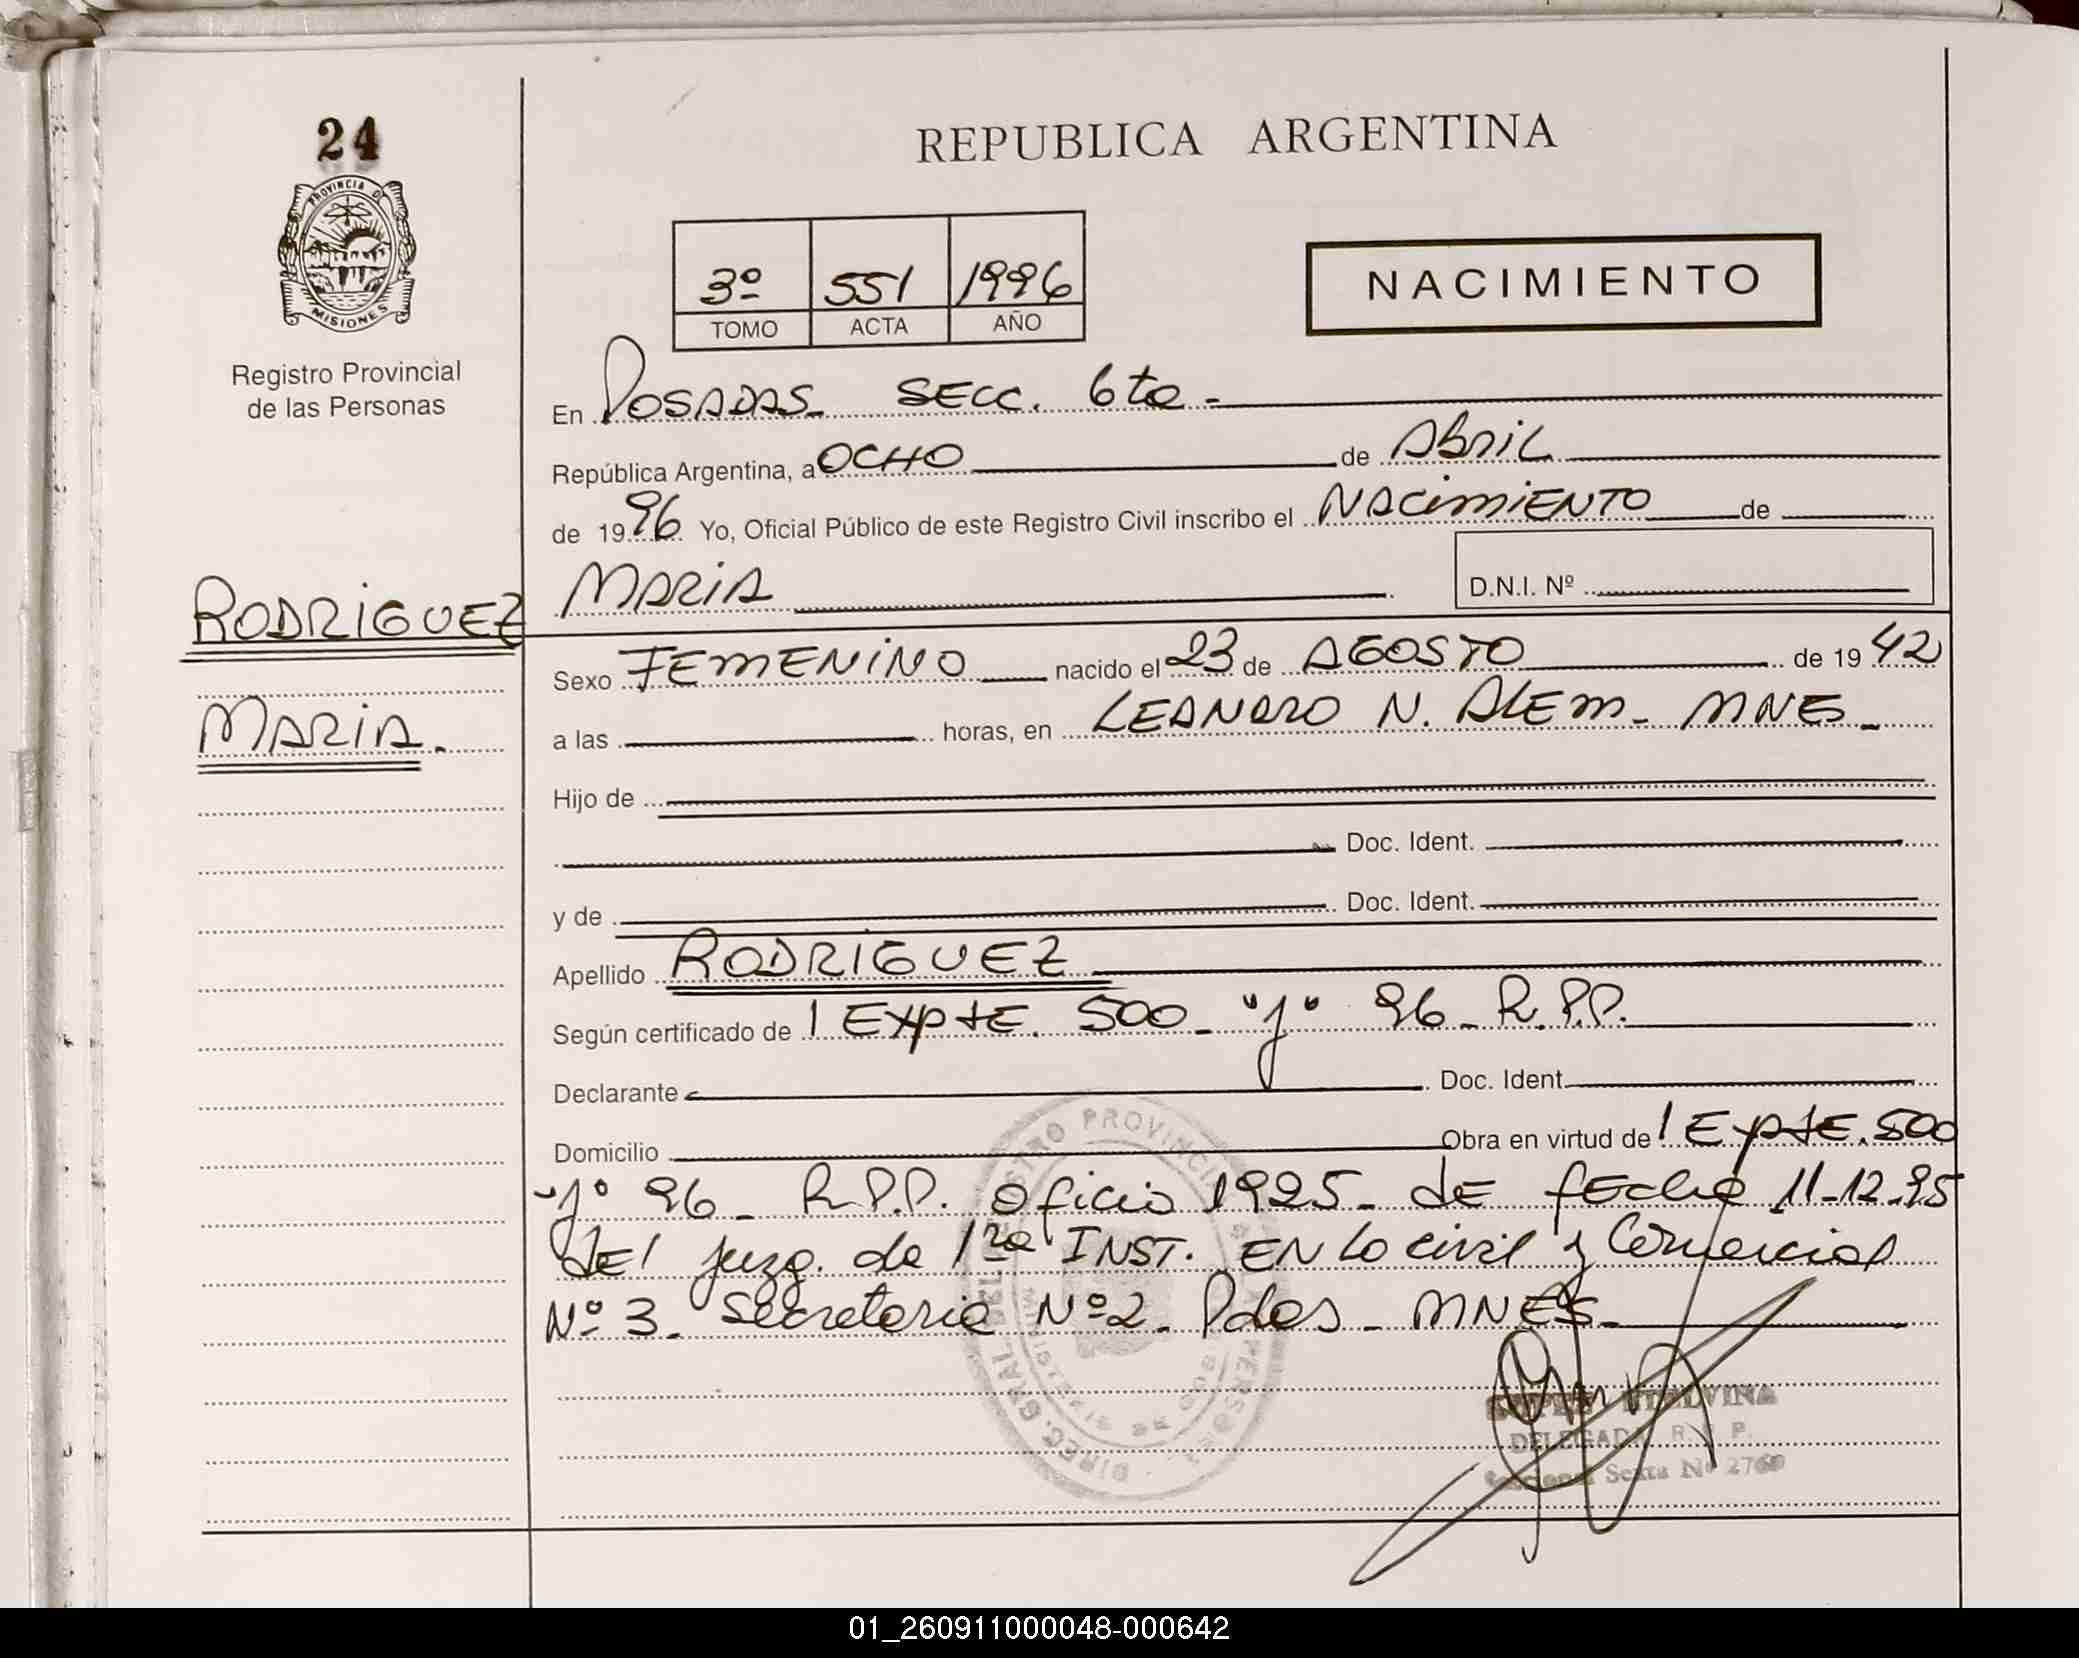 24
PROVINCIA D
MISIONES
Registro Provincial
de las Personas
REPUBLICA ARGENTINA
3º 551 1996
TOMO ACTA AÑO
NACIMIENTO
En POSADAS SECC. 6ta -
República Argentina, a OCHO de Abril
de 1996 Yo, Oficial Público de este Registro Civil inscribo el NACimiENTO de
RODRIGUEZ MARIA D.N.I. Nº
MARIA.
Sexo FEMENINO nacido el 23 de AGOSTO de 1942
a las horas, en LEANDRO N. ALEM - MNES -
Hijo de
Doc. Ident.
y de Doc. Ident.
Apellido RODRIGUEZ
Según certificado de 1 Expte. 500 - "y" 96 - R.P.P.
Declarante Doc. Ident.
Domicilio Obra en virtud de 1 Expte. 500
"y" 96 - R.P.P. oficio 1925 - de fecha 11-12-95
del juzg. de 1ra INST. EN lo civil y Comercial
Nº 3 - Secretaria Nº 2 - Pdas - MNES -
DIREC. GRAL DEL REGISTRO PROVINCIAL DE LAS PERSONAS
ETELVINA
DELEGADA R. P. P.
Seccional Sexta Nº 2760
01_260911000048-000642